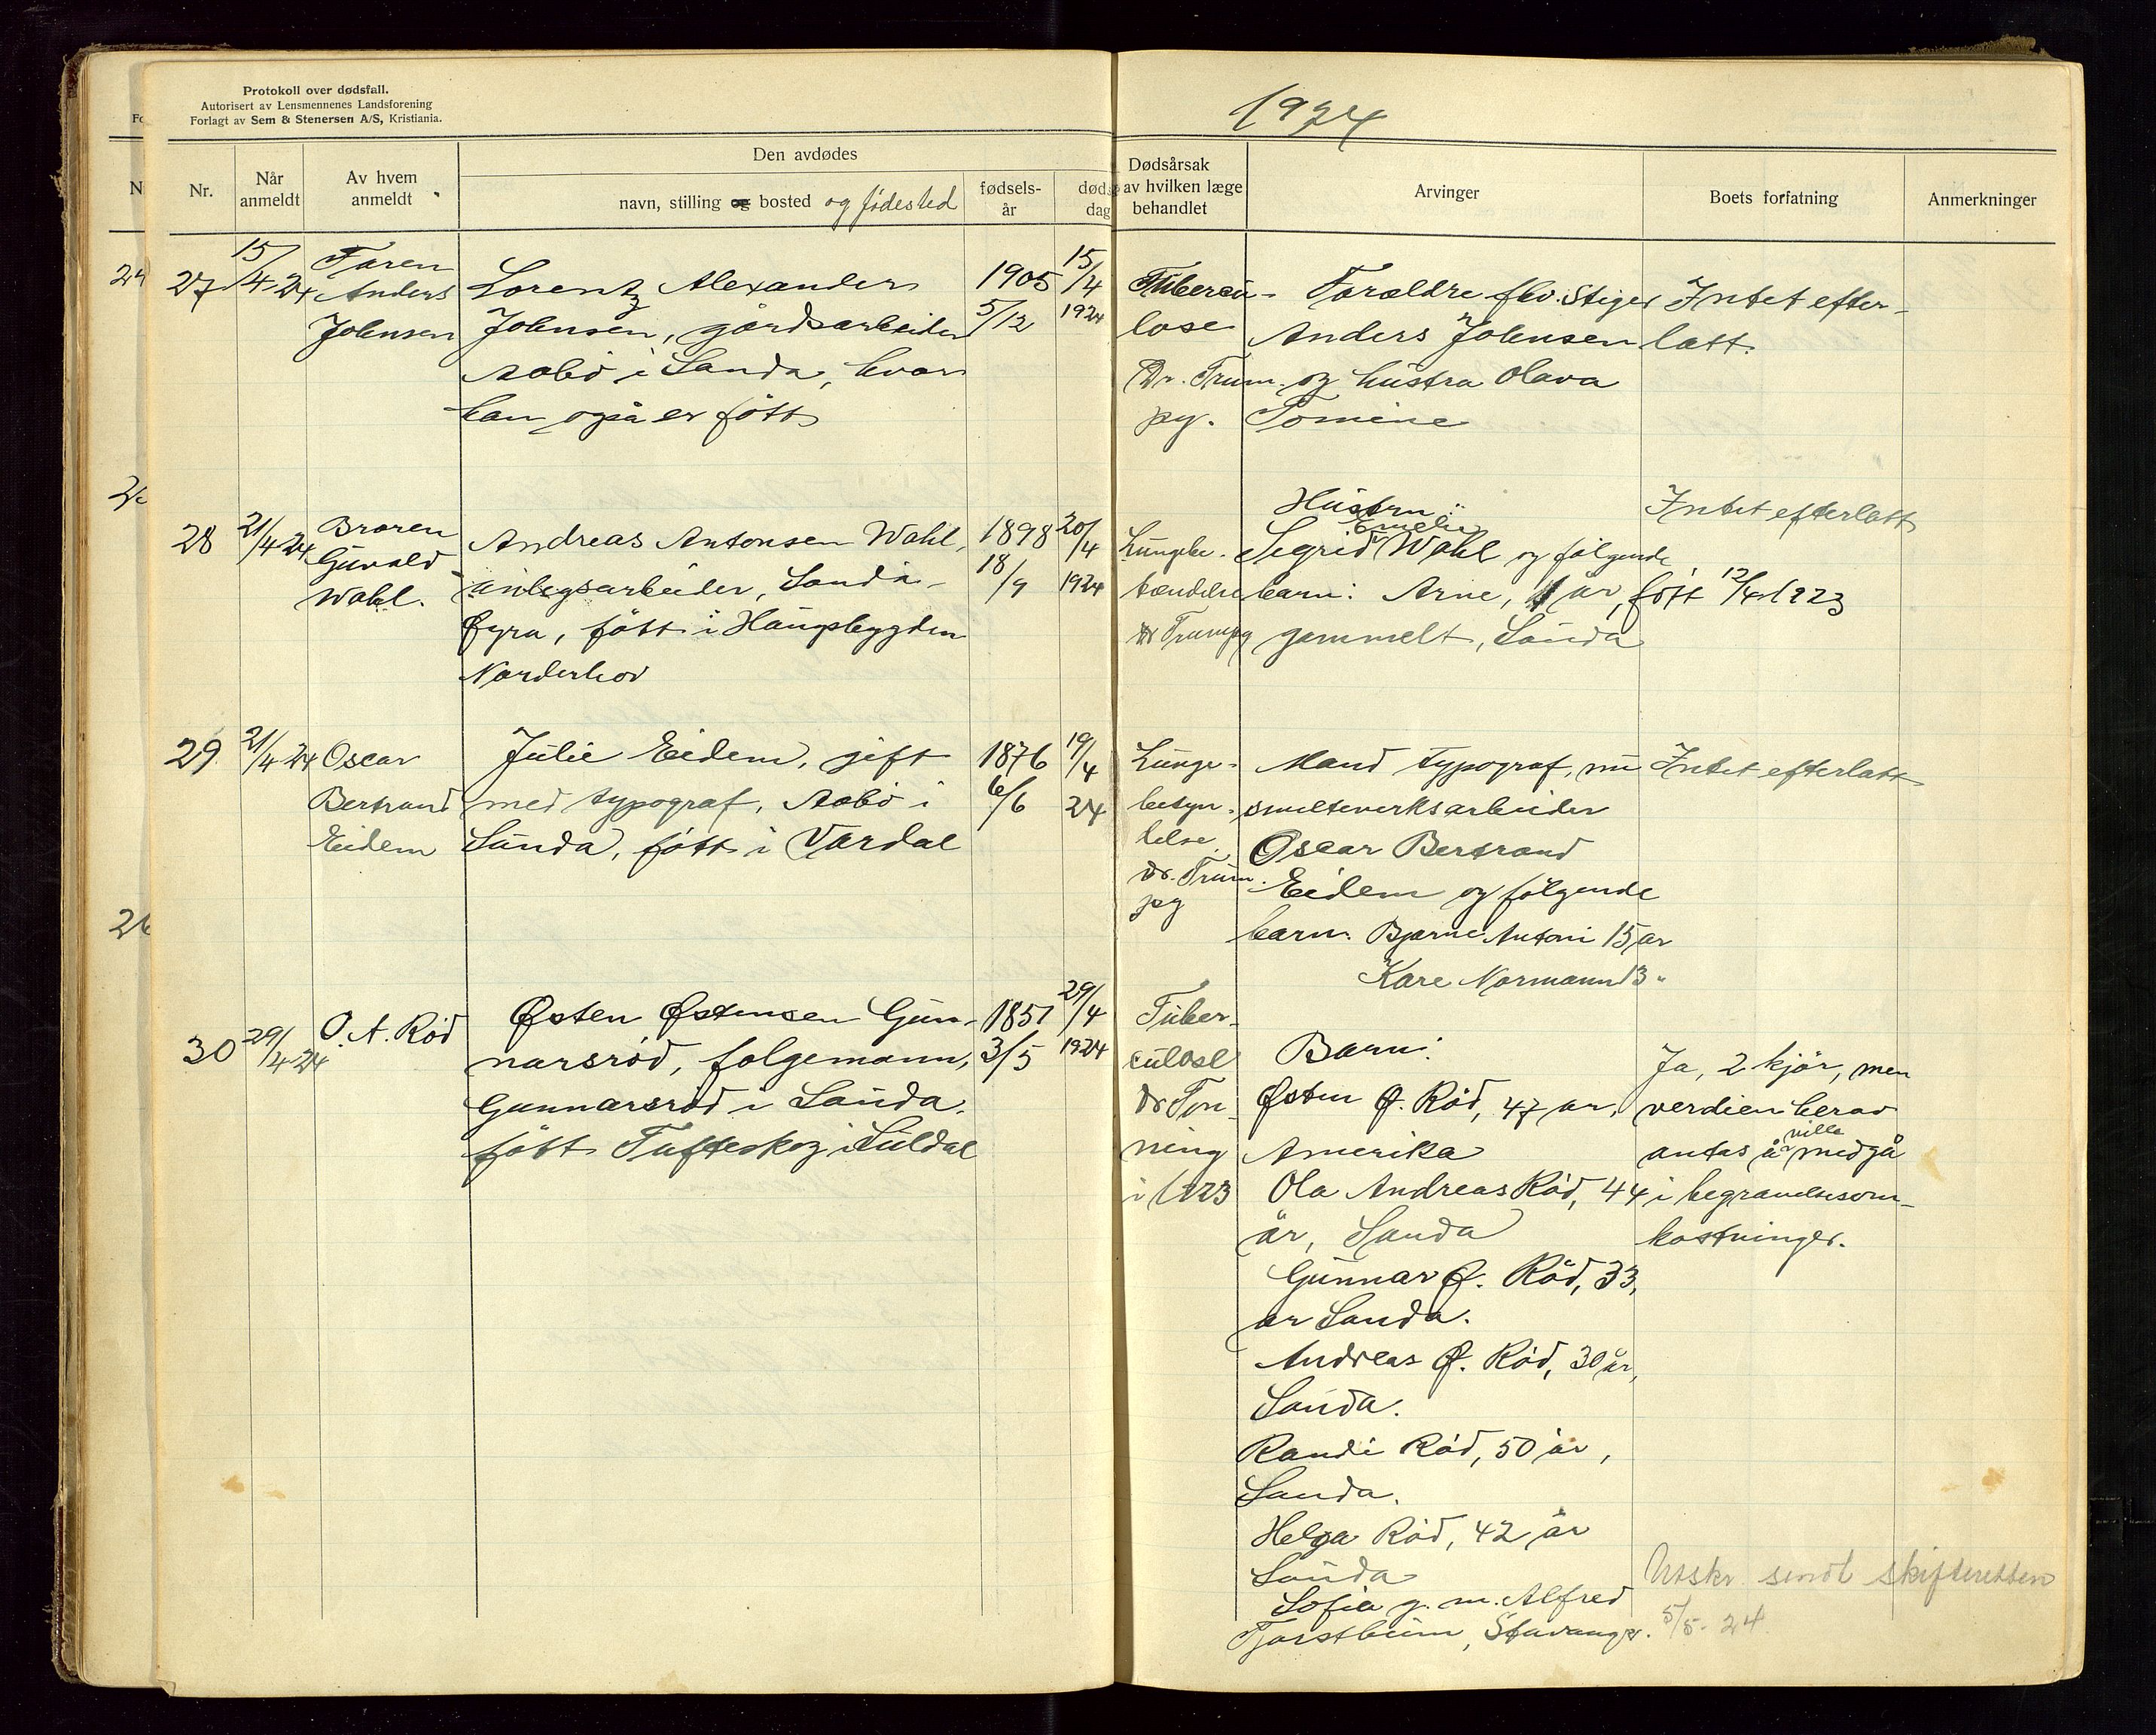 Protokoll over dødsfall.
Autorisert av Lensmennenes Landsforening
Forlagt av Sem & Stenersen A/S, Kristiania.
1924
Nr.
Når anmeldt
Av hvem anmeldt
Den avdødes
navn, stilling og bosted og fødested
fødsels-år
døds dag
Dødsårsak
av hvilken læge
behandlet
Arvinger
Boets forfatning
Anmerkninger
27
15/4 24
Faren
Anders
Johnsen
Lorentz Alexander
Johnsen, gårdsarbeider
Aabø i Sauda, hvor
han også er født
1905
5/12
15/4
1924
Tubercu-
lose
Dr. Trum-
py.
Forældre fhv. Stiger
Anders Johnsen
og hustru Olava
Tomine
Intet efter-
latt.
28
21/4 24
Broren
Gunvald
Wahl.
Andreas Antonsen Wahl,
anlegsarbeider, Sauda-
Øyra, født i Haugsbygden
Norderhov
1898
18/9
20/4
1924
Lungebe-
tændelse
dr Trumpy
Hustru:
Emelie
Sigrid Wahl og følgende
barn: Arne, 1 år, født 12/4 1923
gammelt, Sauda
Intet efterlatt
29
21/4 24
Oscar
Bertrand
Eidem
Julie Eidem, gift
med typograf, Aabø i
Sauda, født i Vardal
1876
6/6
19/4
24
Lunge-
betæn-
delse.
dr. Trum-
py
Mand typograf, nu
smelteverksarbeider
Oscar Bertrand
Eidem og følgende
barn: Bjarne Antoni 15 år
Kåre Normann 13 "
Intet efterlatt
30
29/4 24
O. A. Rød
Østen Østensen Gun-
narsrød, folgemann,
Gunnarsrød i Sauda.
født Tufteskog i Suldal
1851
3/5
29/4
1924
Tuber-
culose
dr Ton-
ning
i 1923
Barn:
Østen Ø. Rød, 47 år,
Amerika
Ola Andreas Rød, 44
år, Sauda
Gunnar Ø. Rød, 33,
år Sauda.
Andreas Ø. Rød, 30 år,
Sauda.
Randi Rød, 50 år,
Sauda.
Helga Rød, 42 år
Sauda
Sofia g. m. Alfred
Tjorstheim, Stavanger.
Ja, 2 kjør, men
verdien herav
antas å ville medgå
i begravelsesom-
kostninger.
Utskr. sendt skifteretten
5/5- 24